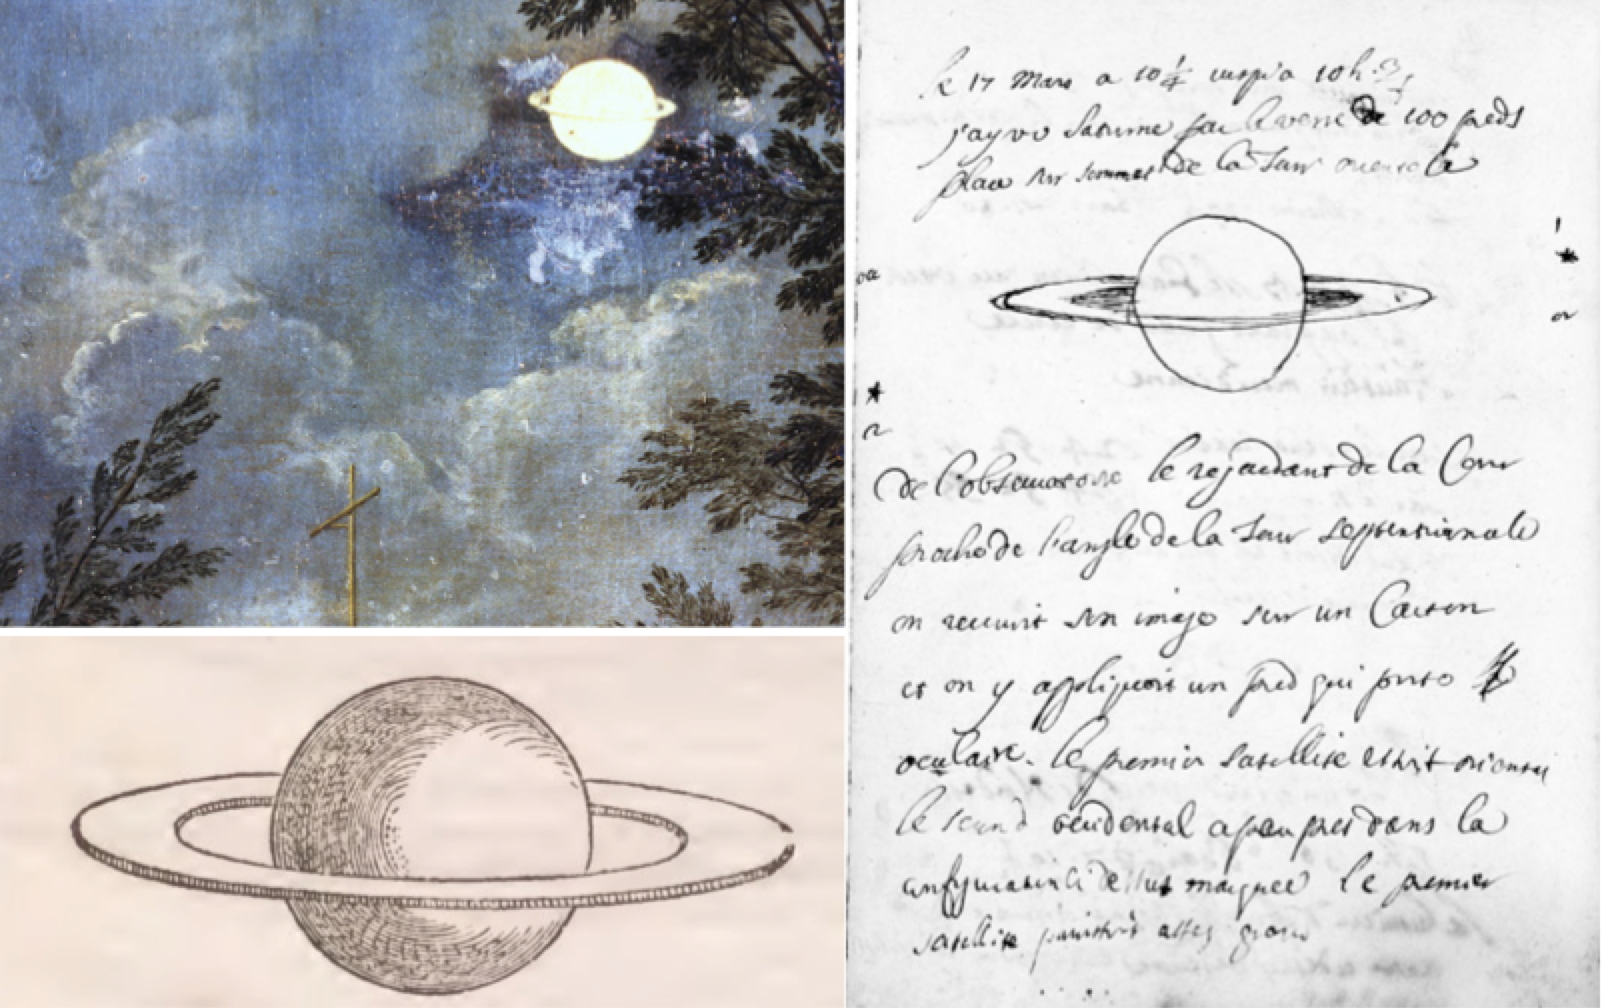 le 17 Mars a 10 1/4 jusqu'a 10h
j'ay vu Saturne par le verre de 100 pieds
placé sur sommet de la Tour orientale
1
or
or
de l'observatoire le regardant de la Cour
proche de l'angle de la Tour septentrionale
on recevoit son image sur un Carton
et on y appliquoit un pied qui porte
oculaire. le premier satellite estoit oriental
le second occidental a peu pres dans la
configuration ci dessus marquée le premier
satellite paroissoit asses gros